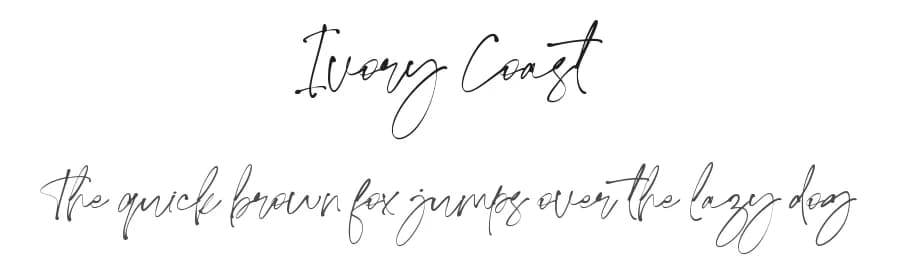 Ivory Coast
The quick brown fox jumps over the lazy dog